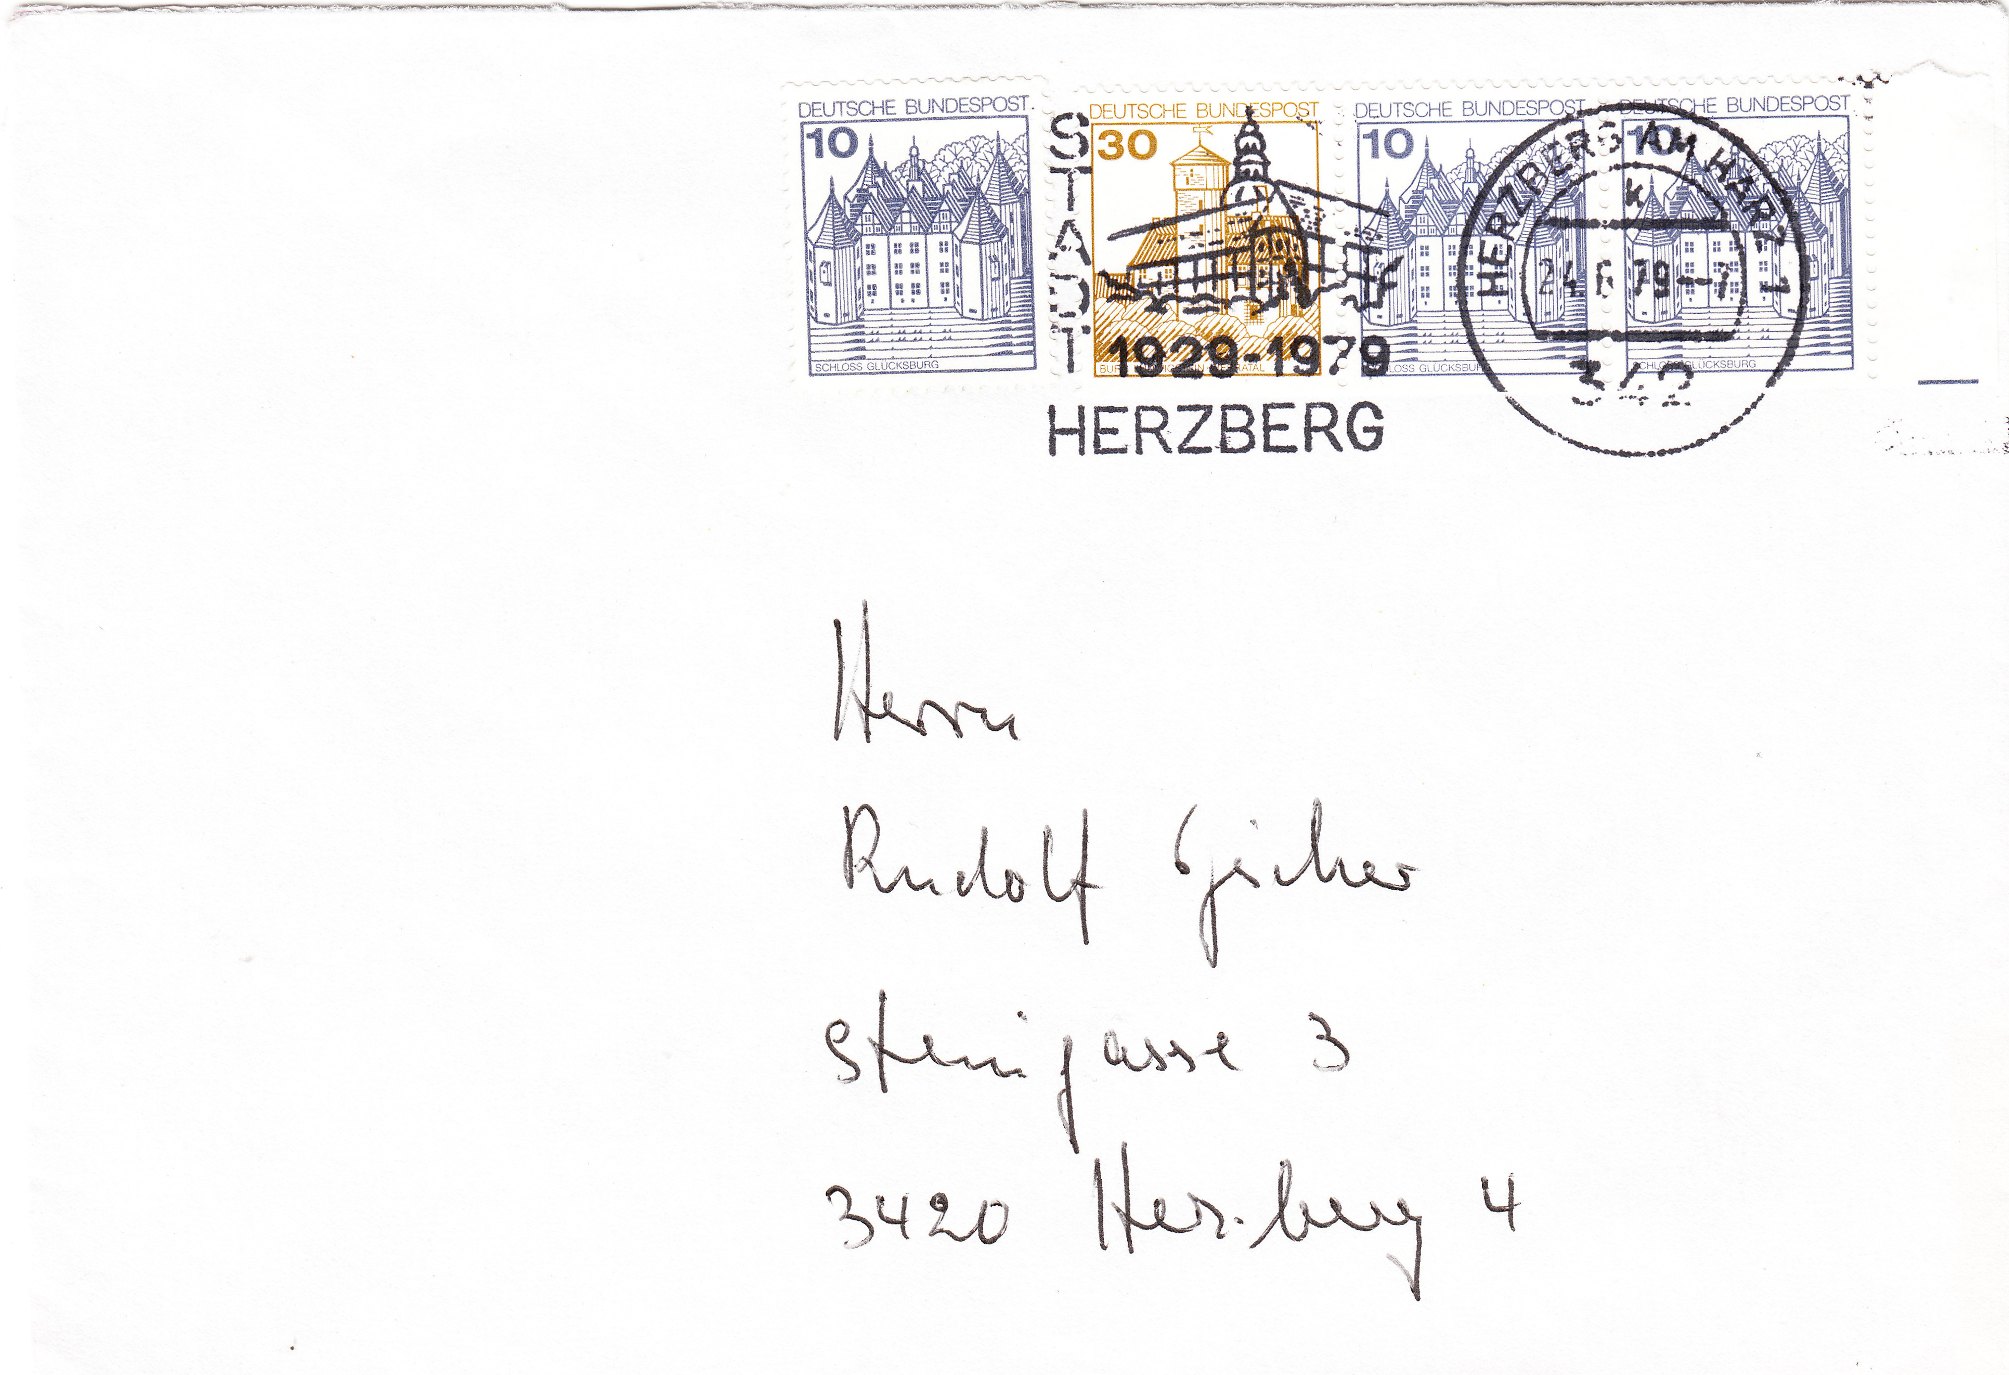 DEUTSCHE BUNDESPOST
10
SCHLOSS GLÜCKSBURG
DEUTSCHE BUNDESPOST
30
DEUTSCHE BUNDESPOST
10
SCHLOSS GLÜCKSBURG
DEUTSCHE BUNDESPOST
10
SCHLOSS GLÜCKSBURG
STADT
1929-1979
HERZBERG
HERZBERG AM HARZ 1
K
24.6.79--7
342
Herrn
Rudolf
Steingasse 3
3420 Herzberg 4